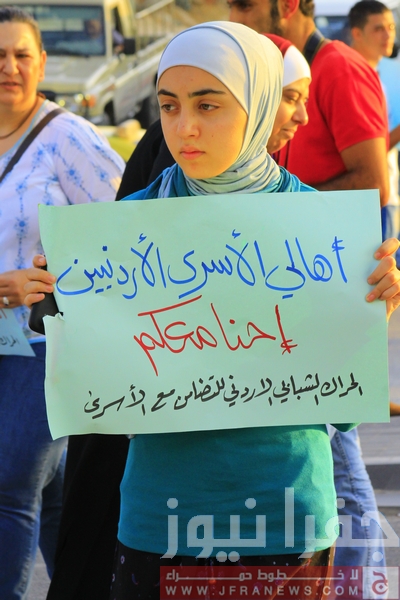 أهالي الأسرى الأردنيين
إحنا معكم
الحراك الشبابي الاردني للتضامن مع الأسرى
جفرا نيوز
لا خطوط حمراء
WWW.JFRANEWS.COM